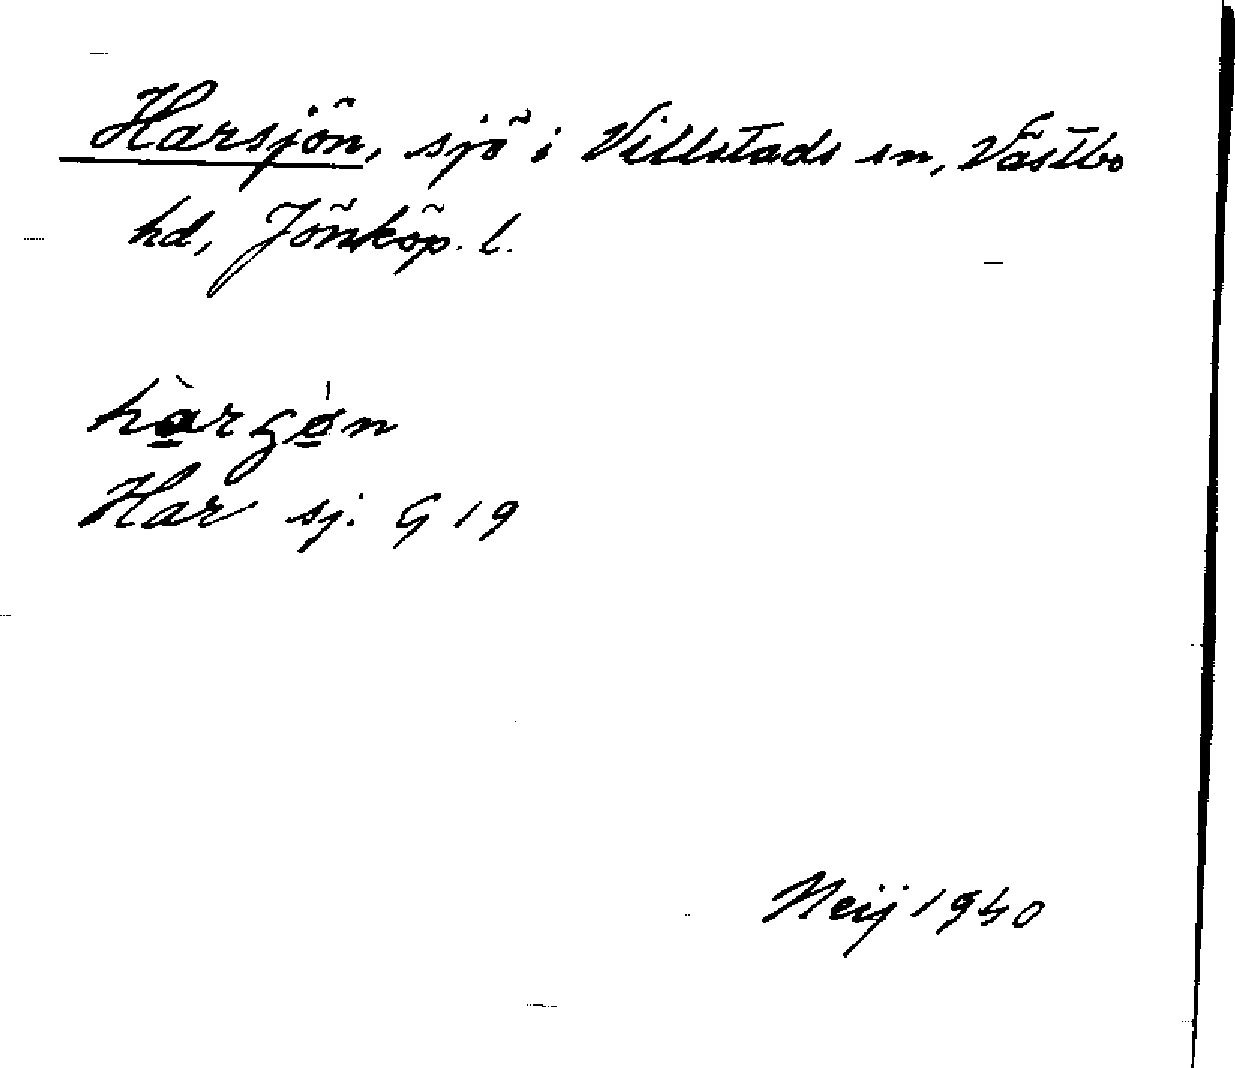 Harsjön, sjö i Villstads sn, Västbo
hd, Jönköp. l.
hàrʒøn
Har sj. G 19
Neij 1940